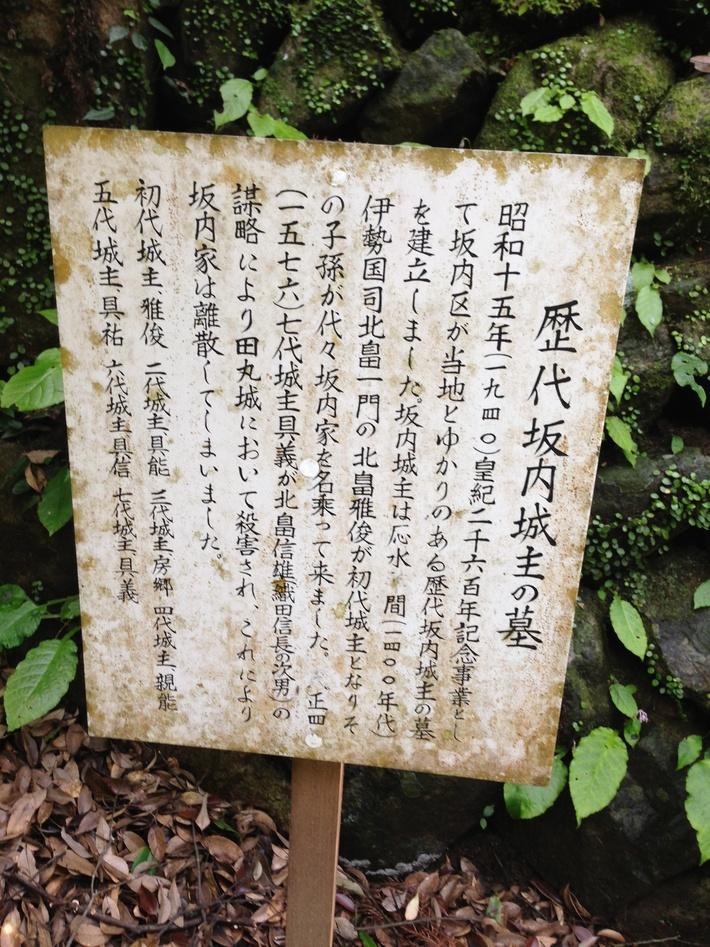 歴代坂内城主の墓
昭和十五年(一九四〇)皇紀二千六百年記念事業とし
て坂内区が当地とゆかりのある歴代坂内城主の墓
を建立しました。坂内城主は応水 間(一四〇〇年代)
伊勢国司北畠一門の北畠雅俊が初代城主となりそ
の子孫が代々坂内家を名乗って来ました。 正四
(一五七六)七代城主具義が北畠信雄(織田信長の次男)の
謀略により田丸城において殺害され、これにより
坂内家は離散してしまいました。
初代城主雅俊 二代城主具能 三代城主房郷 四代城主親能
五代城主具祐 六代城主具信 七代城主具義